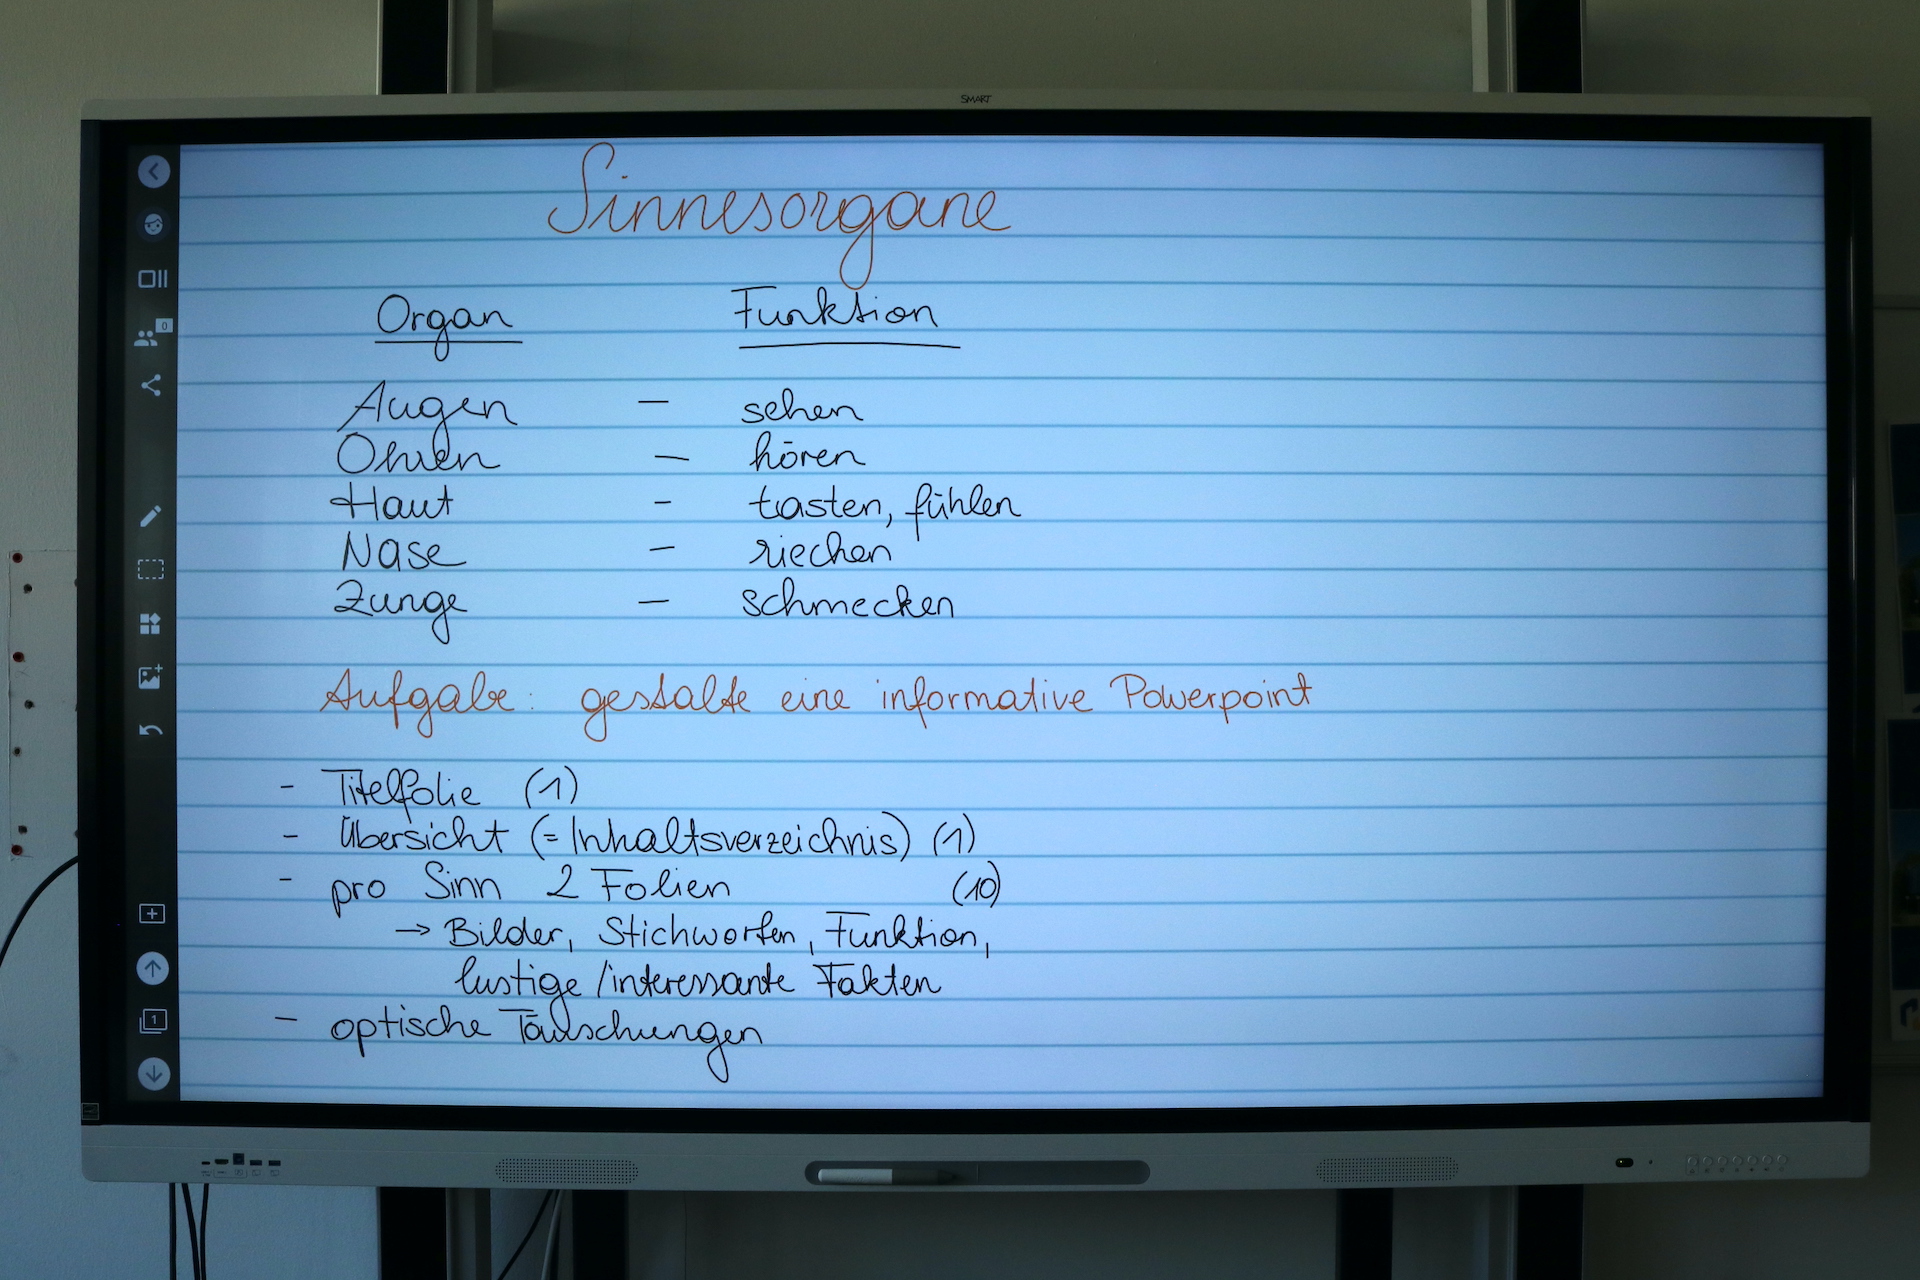 SMART
Sinnesorgane
Organ Funktion
Augen – sehen
Ohren – hören
Haut – tasten, fühlen
Nase – riechen
Zunge – schmecken
Aufgabe: gestalte eine informative Powerpoint
- Titelfolie (1)
- Übersicht (= Inhaltsverzeichnis) (1)
- pro Sinn 2 Folien (10)
→ Bilder, Stichworten, Funktion,
lustige/interessante Fakten
- optische Täuschungen
0
1